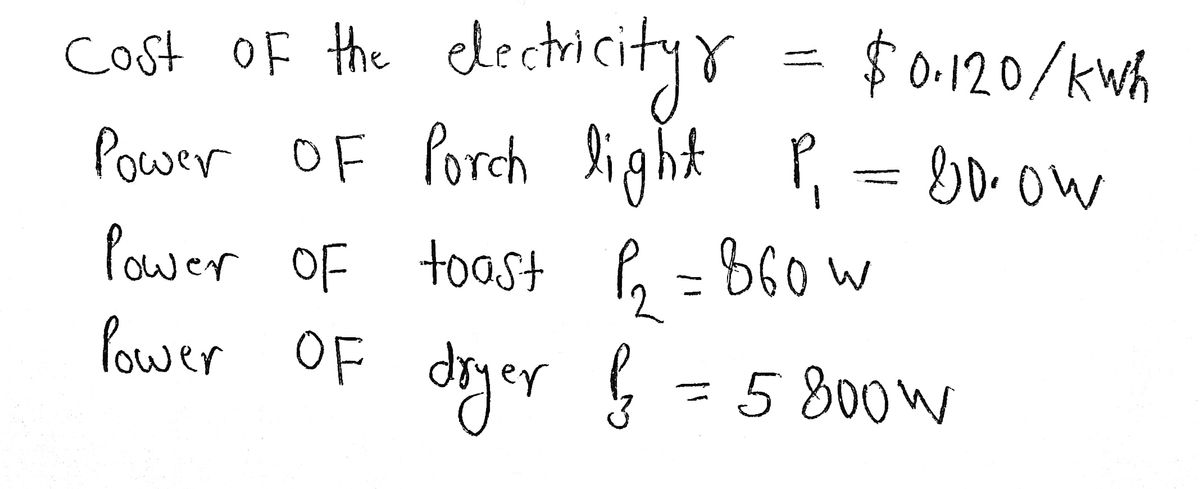 Cost OF the electricity γ = $0.120/kwh
Power OF Porch light P₁ = 80.0W
Power OF toast P₂ = 860 W
Power OF dryer P₃ = 5 800W